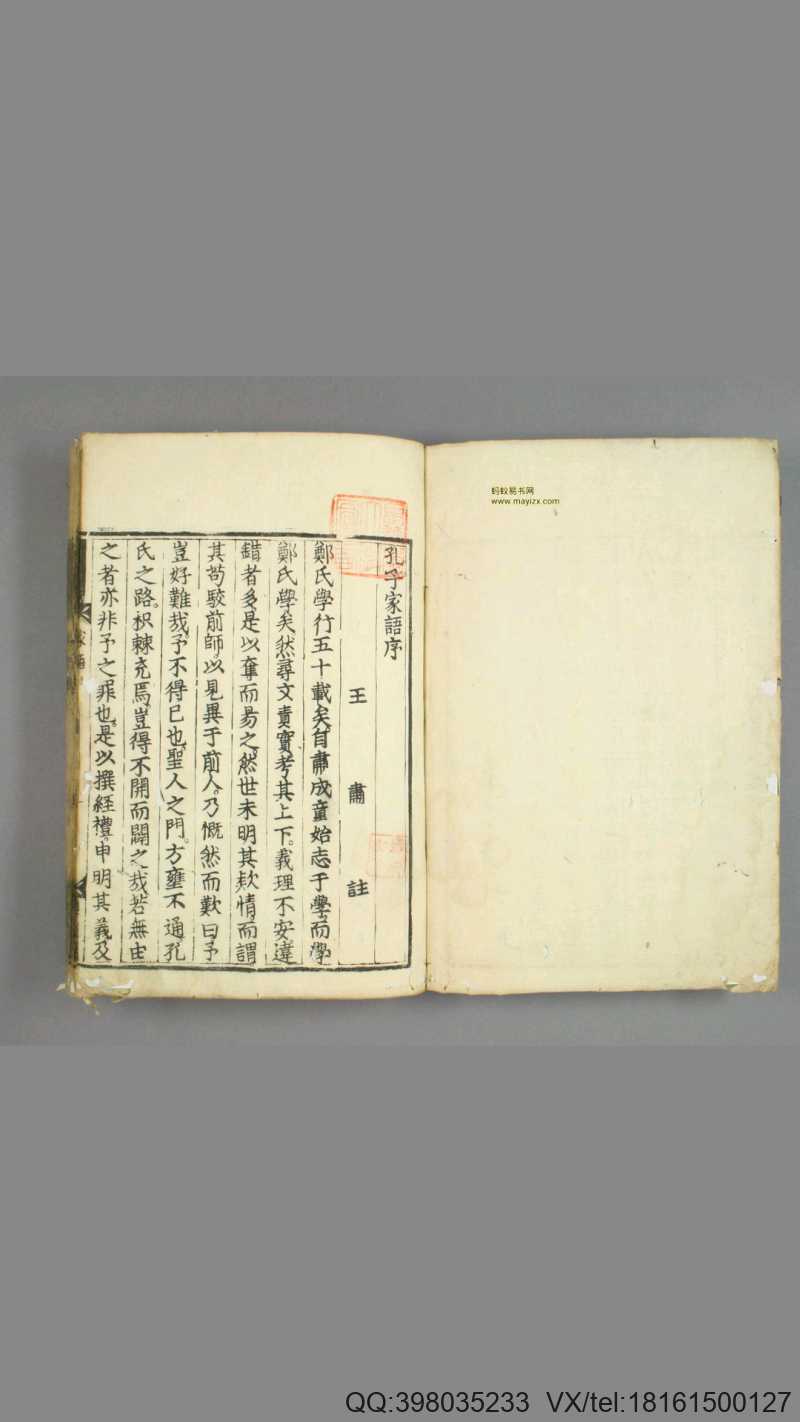 孔子家語序
王肅註
鄭氏學行五十載矣自肅成童始志于學而學
鄭氏學矣然尋文責實考其上下義理不安違
錯者多是以奪而易之然世未明其款情而謂
其苟駮前師以見異于前人乃慨然而歎曰予
豈好難哉予不得已也聖人之門方壅不通孔
氏之路枳棘充焉豈得不開而闢之哉若無由
之者亦非予之罪也是以撰經禮申明其義及
蚂蚁易书网
www.mayizx.com
QQ:398035233 VX/tel:18161500127